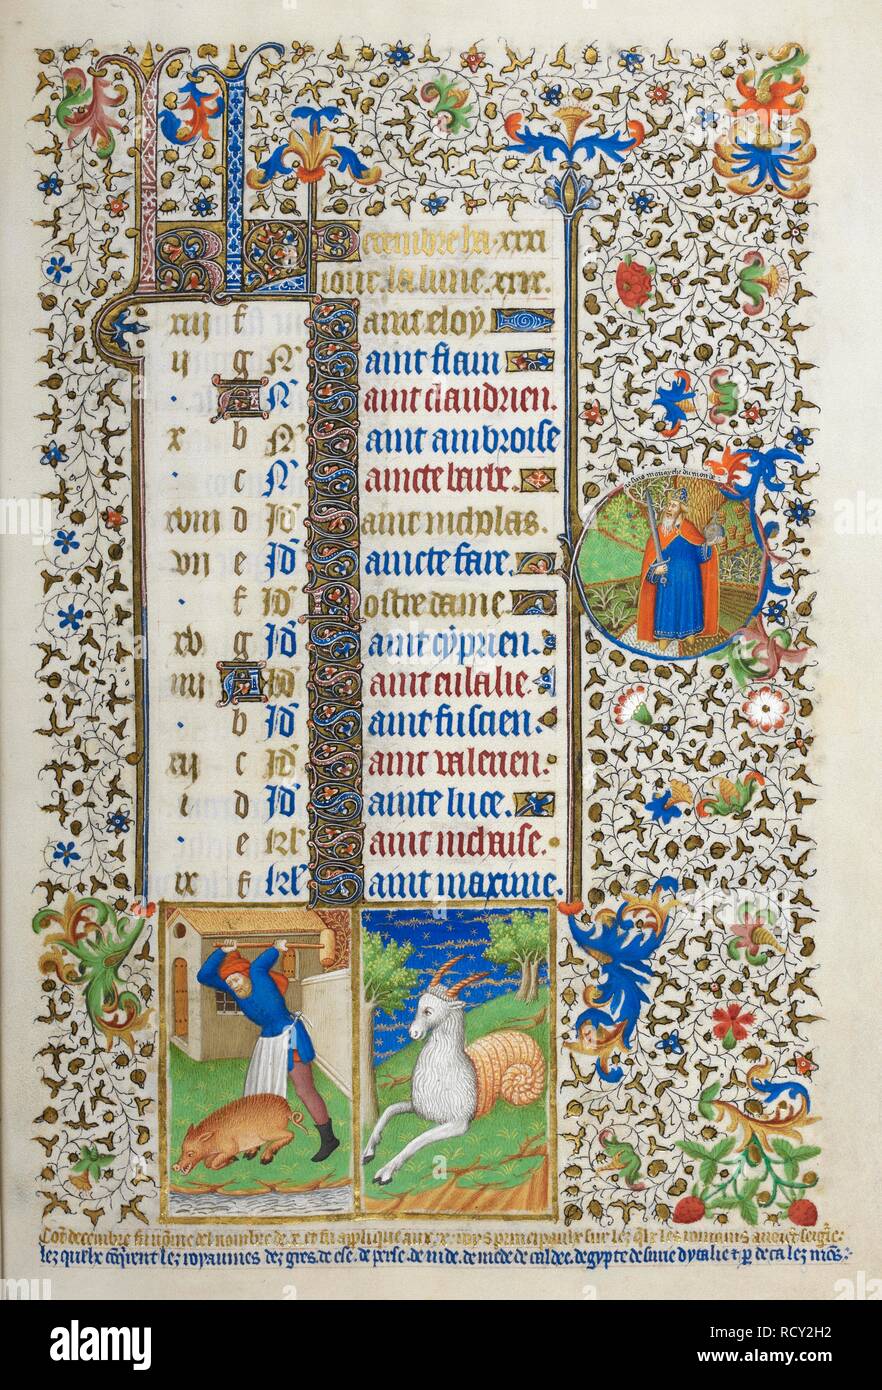 Decembre ha xxxi
iour. la lune. xxx.
xiij f Saint eloy.
ij g N Saint fiacin
A N Saint claudrien.
x b N Saint ambroise
c N Saincte barbe.
xviij d Id Saint nicholas.
vij e Id Saincte faire.
f Id Nostre dame.
xv g Id Saint cyprien.
iiij A Id Saint eulalie.
b Id Saint fuscien.
xij c Id Saint valerien.
j d Id Sainte luce.
e kl Saint nichaise.
ix f kl Saint maxime.
monarche du monde
Coment decembre fu nomme del nombre de x. et fu applique aux x. roys principaulx sur lez quelx les rommains avoient seigneurie
lez quelx tenoient lez royaumes dez gres. de ese. de perse. de inde. de mede. de caldee. degypte de surie dytalie
alamy
Image ID: RCY2H2
www.alamy.com